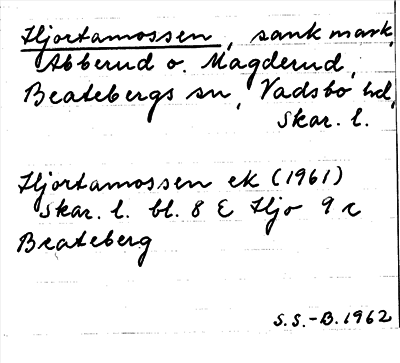 Hjortamossen, sank mark,
Abberud o. Magderud,
Beatebergs sn, Vadsbo hd,
Skar. l.
Hjortamossen ek (1961)
Skar. l. bl. 8 E Hjo 9 c
Beateberg
S.S.-B. 1962